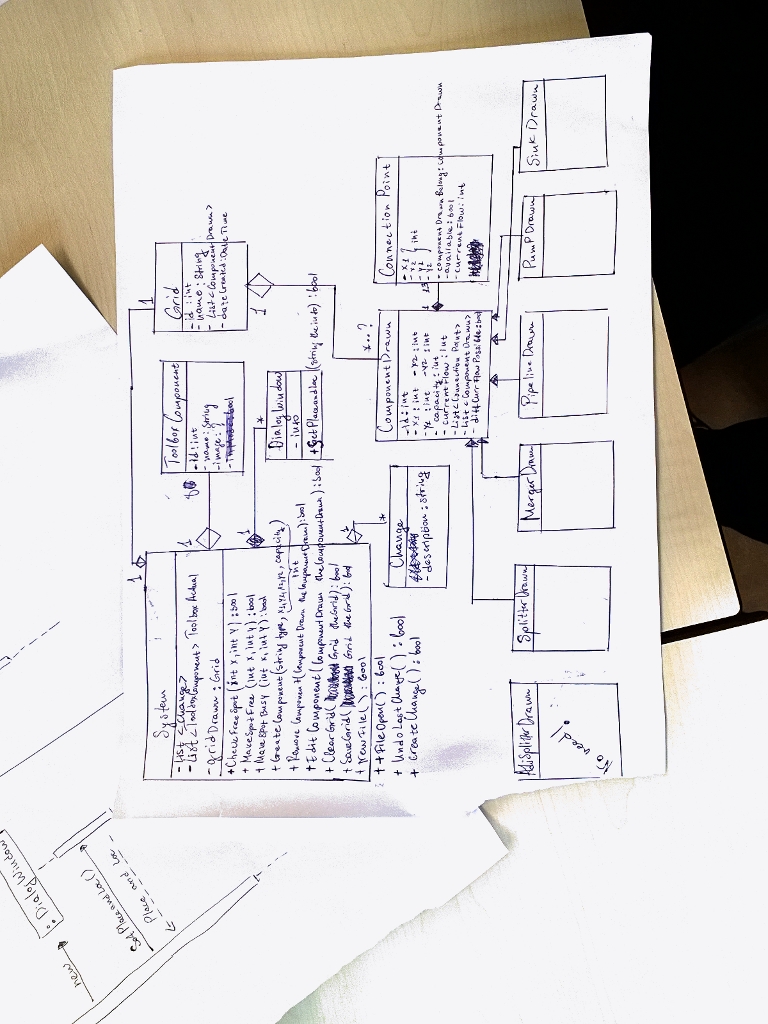 : DialogWindow
new
SetPlaceandLoc()
Place and Loc
1
1
System
- List <Change>
- List <ToolboxComponent> Toolbox Actual
- gridDrawn : Grid
+ CheckFreeSpot (int X, int Y) : bool
+ MakeSpotFree (int x, int Y) : bool
+ MakeSpotBusy (int x, int Y) : bool
+ CreateComponent (string type, x1, y1, x2, y2, capacity)
int
+ Remove Component (Component Drawn theComponentDrawn) : bool
+ Edit Component (Component Drawn theComponentDrawn) : bool
+ ClearGrid ( Grid theGrid) : bool
+ SaveGrid ( Grid theGrid) : bool
+ NewFile ( ) : bool
+ + File Open ( ) : bool
+ Undo Last Change ( ) : bool
+ Create Change ( ) : bool
1
8
Toolbox Component
- id : int
- name : String
- image : ?
1
*
Dialog Window
- info
+ GetPlaceandLoc (string the info) : bool
Grid
- id : int
- name : String
- List <Component Drawn>
- dateCreated : DateTime
1
*..?
1
*
Change
- description : string
ComponentDrawn
- id : int
- x1 : int - x2 : int
- y1 : int - y2 : int
- capacity : int
- currentFlow : int
- List <Connection Point>
- List <Component Drawn>
- diffCurrFlowPossible : bool
1
Connection Point
- x1
- x2
- y1
- y2
int
- componentDrawnBelong : component Drawn
- available : bool
- currentFlow : int
AdjSplitterDrawn
No need!
SplitterDrawn
MergerDrawn
Pipeline Drawn
Pump Drawn
Sink Drawn